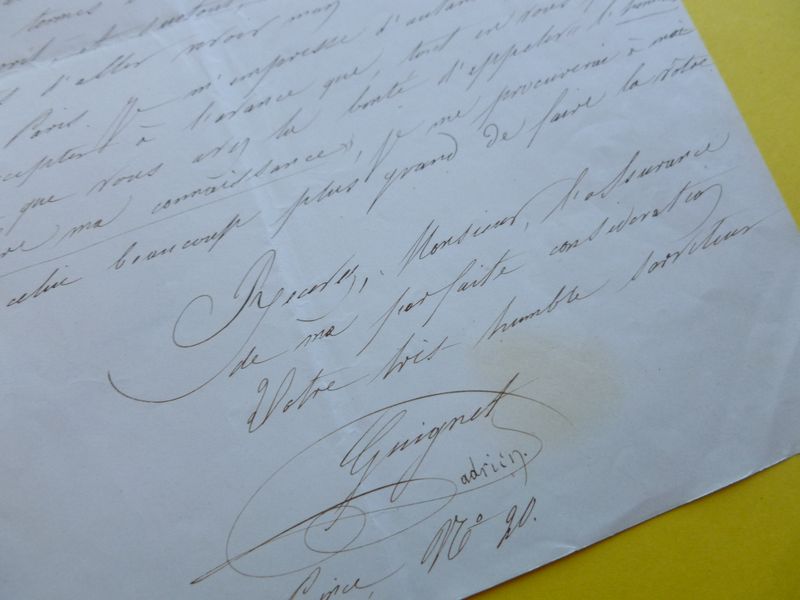 d'aller
Paris. Je m'empresse d'autant
à l'avance que, tout en vous
que vous avez la bonté d'appeler l'honneur
ma connaissance, je me procurerai à moi
celui beaucoup plus grand de faire la vôtre
Recevez, Monsieur, l'assurance
de ma parfaite considération
Votre très humble serviteur
Guignet
adrien.
No 20.